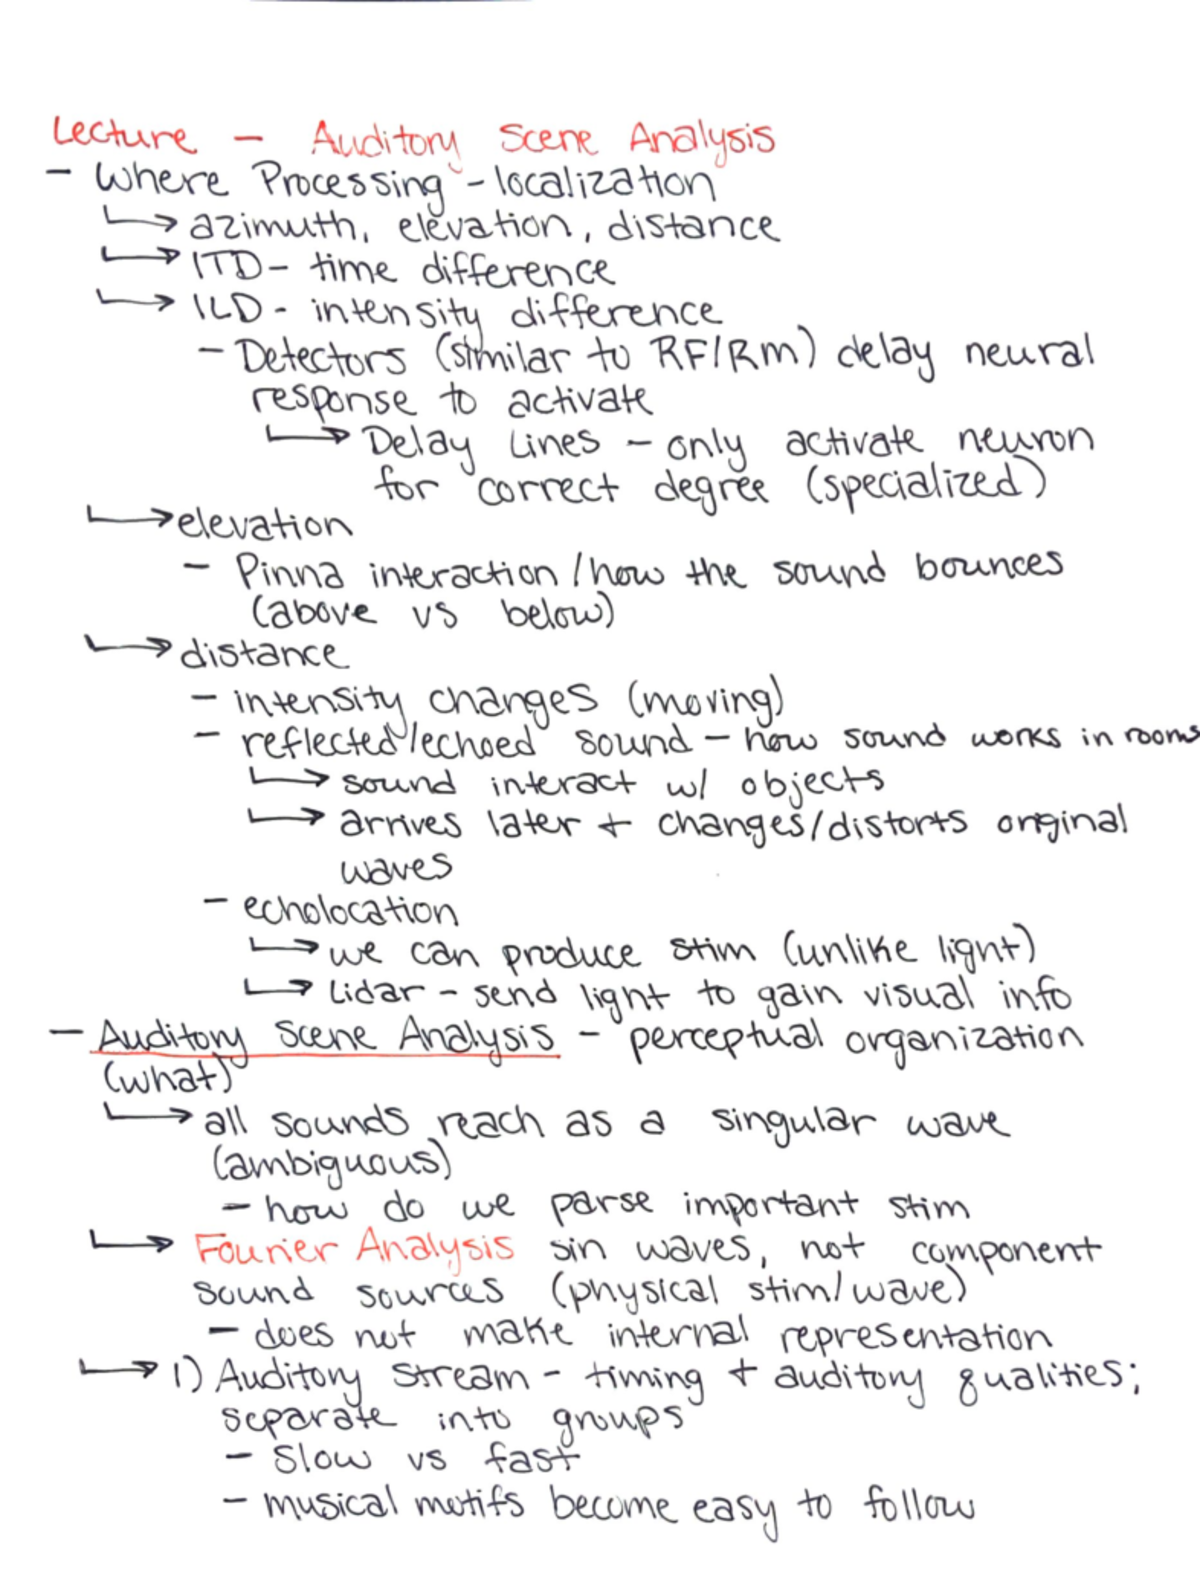 Lecture - Auditory Scene Analysis
- Where Processing - localization
↳ azimuth, elevation, distance
↳ ITD - time difference
↳ ILD - intensity difference
- Detectors (similar to RF/Rm) delay neural
response to activate
↳ Delay Lines - only activate neuron
for correct degree (specialized)
↳ elevation
- Pinna interaction / how the sound bounces
(above vs below)
↳ distance
- intensity changes (moving)
- reflected/echoed sound - how sound works in rooms
↳ sound interact w/ objects
↳ arrives later + changes/distorts original
waves
- echolocation
↳ we can produce stim (unlike light)
↳ Lidar - send light to gain visual info
- Auditory Scene Analysis - perceptual organization
(what)
↳ all sounds reach as a singular wave
(ambiguous)
- how do we parse important stim
↳ Fourier Analysis sin waves, not component
sound sources (physical stim/wave)
- does not make internal representation
↳ 1) Auditory Stream - timing + auditory qualities;
separate into groups
- Slow vs fast
- musical motifs become easy to follow